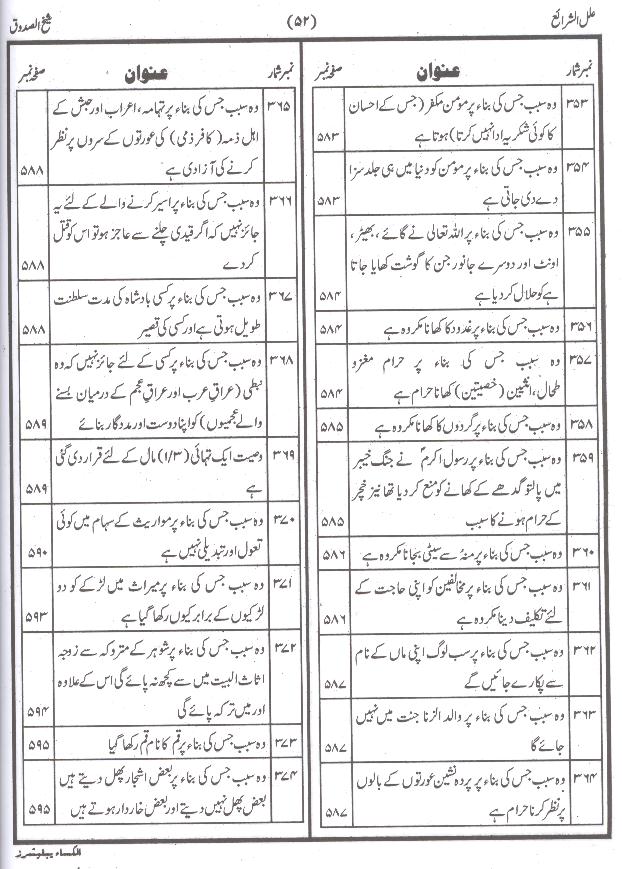 علل الشرائع (۵۲) شیخ الصدوق
نمبر شمار عنوان صفحہ نمبر
۳۵۳ وہ سبب جس کی بناء پر مومن مکفر (جس کے احسان
کا کوئی شکریہ ادا نہیں کرتا) ہوتا ہے ۵۸۳
۳۵۴ وہ سبب جس کی بناء پر مومن کو دنیا میں ہی جلد سزا
دے دی جاتی ہے ۵۸۳
۳۵۵ وہ سبب جس کی بناء پر اللہ تعالی نے گائے، بھیڑ،
اونٹ اور دوسرے جانور جن کا گوشت کھایا جاتا
ہے کو حلال کر دیا ہے ۵۸۴
۳۵۶ وہ سبب جس کی بناء پر غدود کا کھانا مکروہ ہے ۵۸۴
۳۵۷ وہ سبب جس کی بناء پر حرام مغز و
طحال، انثیین (خصیتین) کھانا حرام ہے ۵۸۴
۳۵۸ وہ سبب جس کی بناء پر گردوں کا کھانا مکروہ ہے ۵۸۵
۳۵۹ وہ سبب جس کی بناء پر رسول اکرمؐ نے جنگ خیبر
میں پالتو گدھے کے کھانے کو منع کر دیا تھا نیز خچر
کے حرام ہونے کا سبب ۵۸۵
۳۶۰ وہ سبب جس کی بناء پر منہ سے سیٹی بجانا مکروہ ہے ۵۸۶
۳۶۱ وہ سبب جس کی بناء پر مخالفین کو اپنی حاجت کے
لئے تکلیف دینا مکروہ ہے ۵۸۶
۳۶۲ وہ سبب جس کی بناء پر سب لوگ اپنی ماں کے نام
سے پکارے جائیں گے ۵۸۷
۳۶۳ وہ سبب جس کی بناء پر والد الزنا جنت میں نہیں
جائے گا ۵۸۷
۳۶۴ وہ سبب جس کی بناء پر پردہ نشین عورتوں کے بالوں
پر نظر کرنا حرام ہے ۵۸۷
نمبر شمار عنوان صفحہ نمبر
۳۶۵ وہ سبب جس کی بناء پر تہامہ، اعراب اور حبش کے
اہل ذمہ (کافر ذمی) کی عورتوں کے سروں پر نظر
کرنے کی آزادی ہے ۵۸۸
۳۶۶ وہ سبب جس کی بناء پر اسیر کرنے والے کے لئے یہ
جائز نہیں کہ اگر قیدی چلنے سے عاجز ہو تو اس کو قتل
کر دے ۵۸۸
۳۶۷ وہ سبب جس کی بناء پر کسی بادشاہ کی مدت سلطنت
طویل ہوتی ہے اور کسی کی قصیر ۵۸۸
۳۶۸ وہ سبب جس کی بناء پر کسی کے لئے جائز نہیں کہ وہ
نبطی (عراق عرب اور عراق عجم کے درمیان بسنے
والے عجمیوں) کو اپنا دوست اور مددگار بنائے ۵۸۹
۳۶۹ وصیت ایک تہائی (۱/۳) مال کے لئے قرار دی گئی
ہے ۵۸۹
۳۷۰ وہ سبب جس کی بناء پر مواریث کے سہام میں کوئی
تعول اور تبدیلی نہیں ہے ۵۹۰
۳۷۱ وہ سبب جس کی بناء پر میراث میں لڑکے کو دو
لڑکیوں کے برابر کیوں رکھا گیا ہے ۵۹۳
۳۷۲ وہ سبب جس کی بناء پر شوہر کے متروکہ سے زوجہ
اثاث البیت میں سے کچھ نہ پائے گی اس کے علاوہ
اور میں ترکہ پائے گی ۵۹۴
۳۷۳ وہ سبب جس کی بناء پر قم کا نام قم رکھا گیا ۵۹۵
۳۷۴ وہ سبب جس کی بناء پر بعض اشجار پھل دیتے ہیں
بعض پھل نہیں دیتے اور بعض خاردار ہوتے ہیں ۵۹۵
الکساء پبلیشرز